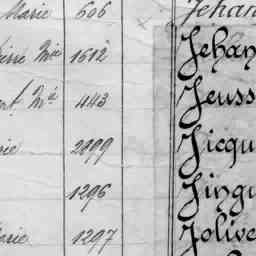 Marie 606 Jehan
Mie 1612 Jehan
Mie 443 Jeuss
rie 2099 Jicqu
1296 Jingu
Marie 1297 Jolive